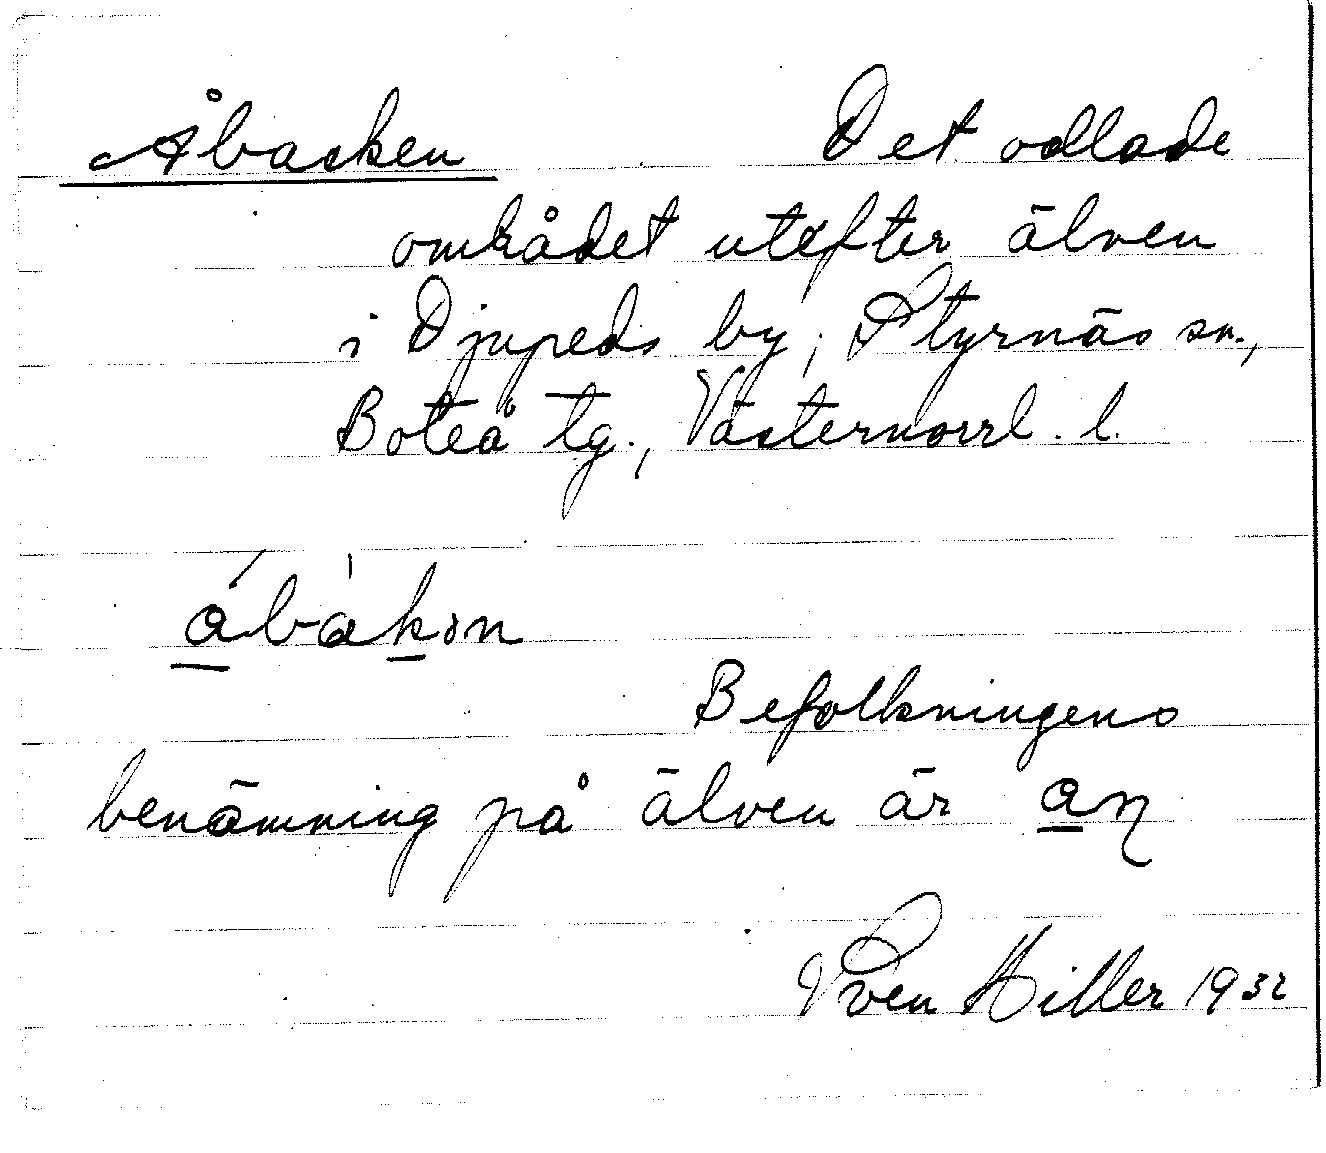 Åbacken Det odlade
området utefter älven
i Djupeds by, Styrnäs sn.,
Boteå tg., Västernorrl. l.
åbákən
Befolkningens
benämning på älven är an
Sven Hiller 1932